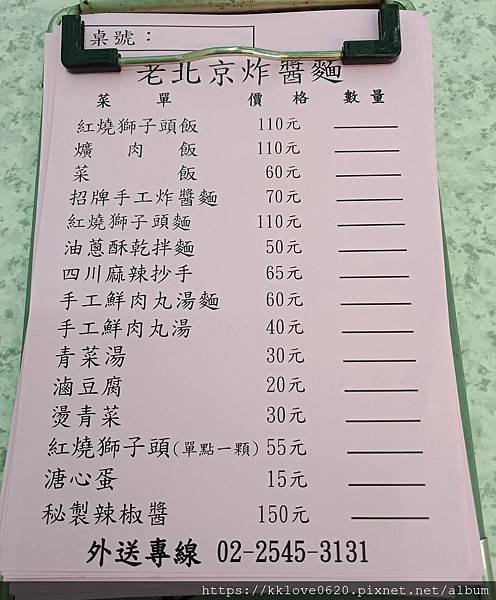 桌號：
老北京炸醬麵
菜 單 價 格 數量
紅燒獅子頭飯 110元
爌 肉 飯 110元
菜 飯 60元
招牌手工炸醬麵 70元
紅燒獅子頭麵 110元
油蔥酥乾拌麵 50元
四川麻辣抄手 65元
手工鮮肉丸湯麵 60元
手工鮮肉丸湯 40元
青菜湯 30元
滷豆腐 20元
燙青菜 30元
紅燒獅子頭(單點一顆) 55元
溏心蛋 15元
秘製辣椒醬 150元
外送專線 02-2545-3131
https://kklove0620.pixnet.net/album